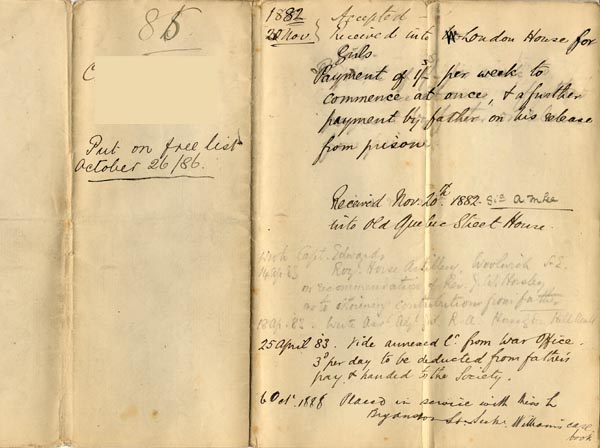 85
C
Put on free list
October 26/86.
1882
20 Nov. Accepted -
Received into W London House for
Girls
Payment of 1/- per week to
commence at once, & a further
payment by father on his release
from prison
Received Nov. 20th 1882.
into Old Quebec Street House.
Capt. Edwards
Roy. Horse Artillery, Woolwich S.E.
on recommendation of Rev. Horsley,
contributions from father
Adjt R. A.
25 April '83. Vide annexed l. from War Office.
3d per day to be deducted from father's
pay & handed to the Society.
6 Oct. 1888 Placed in service with Miss L
Bryanston St. Williams case
book